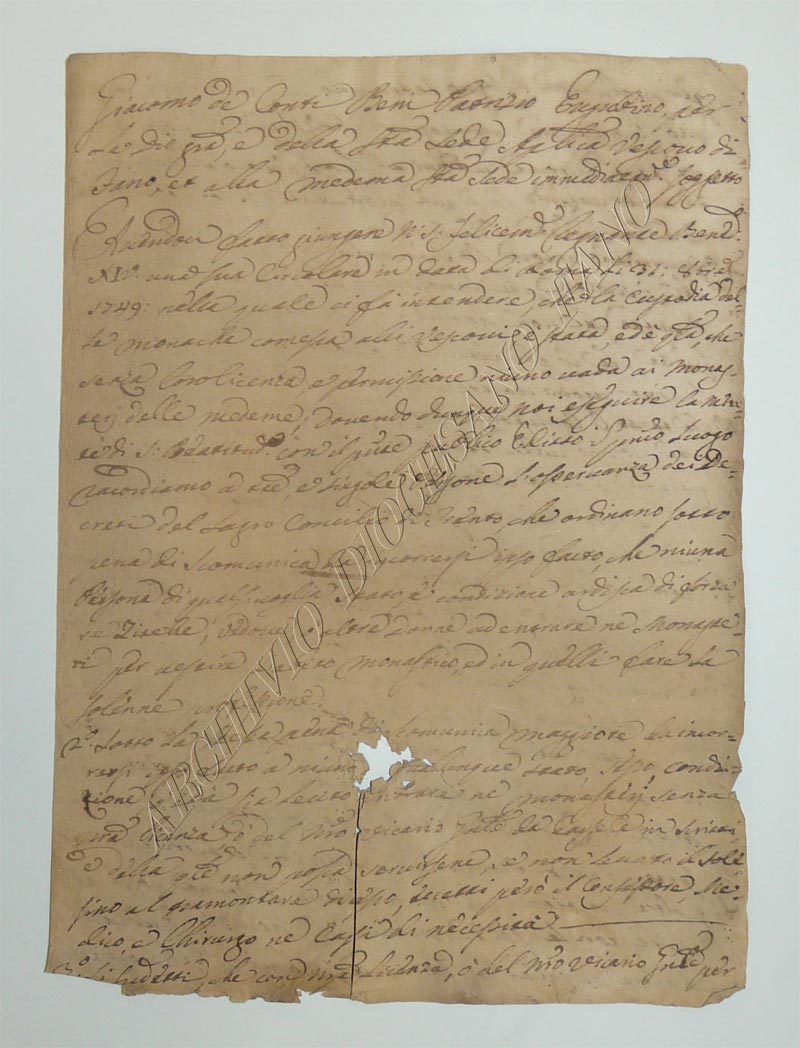 Giacomo de Conti Beni Patrizio Eugubino, per
La Dio gra, e della Sta Sede Aplica Vescovo di
Fano, et alla medema Sta Sede immediatam.te Soggetto
Avendoci fatto giungere N: S: felicem.e Regnante Bened.o
XIV. una sua Circolare in data di Roma li 31: 8bre
1749: nella quale ci fà intendere, che la Custodia del-
le monache comessa alli Vescovi è stata, ed è, che
senza loro licenza, e permissione niuno vada ai monas-
terj delle medeme, Dovendo dunque noi eseguire la
di S: Beatitud.e con il pnte publico Editto Luogo
ricordiamo à tte, e singole l'osservanza dei De-
creti del Sagro Concilio di Trento che ordinano sotto
pena di Scomunica da incorrersi ipso facto, che niuna
Persona di qualsivoglia stato, e condizione ardisca di forza-
re Zitelle, Vedove, o altre donne ad entrare ne Monaste-
ri per vestire l'abito monastico, ed in quelli fare la
solenne professione.
2.o Sotto la pena di Scomunica maggiore da incor-
rersi ipso facto à niuno qualunque stato, condi-
zione sia lecito entrare ne monasterj senza
nra licenza, ò del Nro Vicario Gnle da in scritti
e dalla non possa servirsene, se non levato il sole
fino al tramontare di esso, eccetti però il Confessore, Me-
dico, e Chirurgo ne Casi di necessità
3.o Li sudetti, che con nra Licenza, ò del Nro Vicario Gnle per
ARCHIVIO DIOCESANO FANO